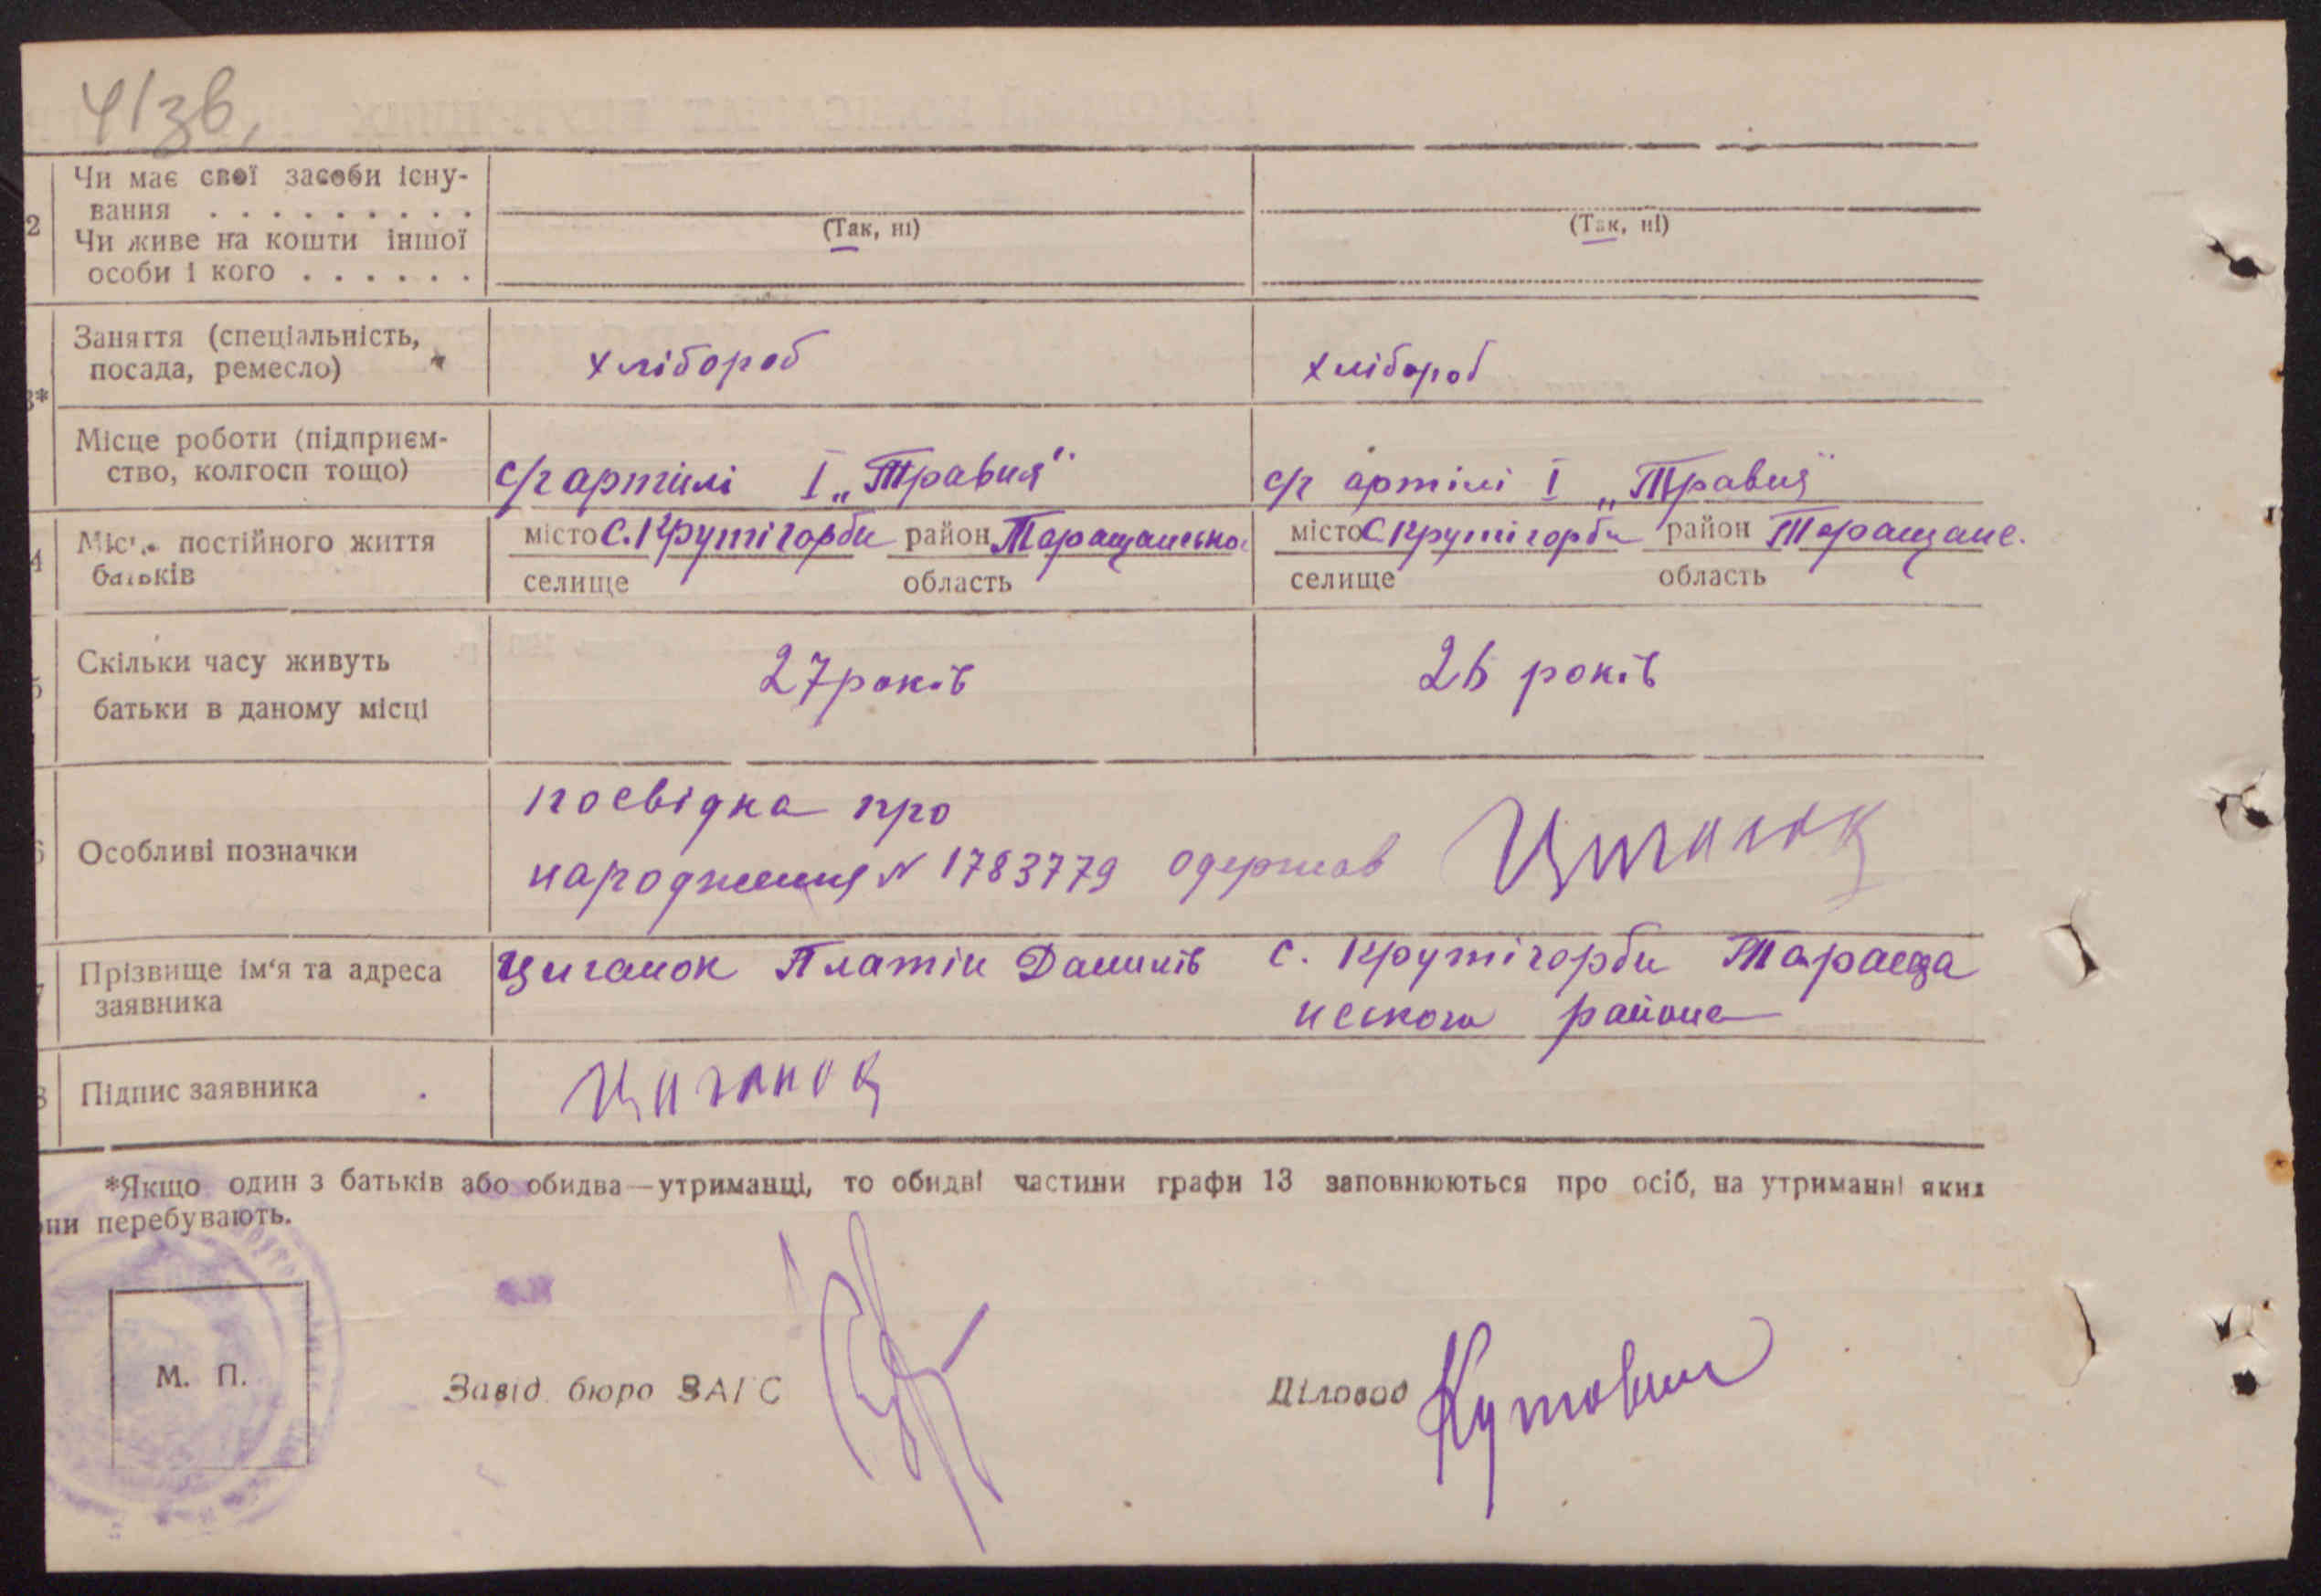 4/зв,
2 Чи має свої засоби існу-
вання . . . . . . . . .
Чи живе на кошти іншої
особи і кого . . . . . .
(Так, ні) (Так, ні)
3* Заняття (спеціальність,
посада, ремесло)
хлібороб хлібороб
Місце роботи (підприєм-
ство, колгосп тощо)
с/г артілі I „Травня" с/г артілі I „Травня"
4 Місц. постійного життя
батьків
місто С. Крутігорби район Таращансько місто С Крутігорби район Таращанс.
селище область селище область
5 Скільки часу живуть
батьки в даному місці
27 років 26 років
6 Особливі позначки
посвідка про
народження N 1783779 одержав Циганок
7 Прізвище ім'я та адреса
заявника
Циганок Платін Данилів с. Крутігорби Тараща
нського района
8 Підпис заявника .
Циганок
*Якщо один з батьків або обидва—утриманці, то обидві частини графи 13 заповнюються про осіб, на утриманні яких
они перебувають.
М. П.
Завід. бюро ЗАГС
Діловод Кутовий